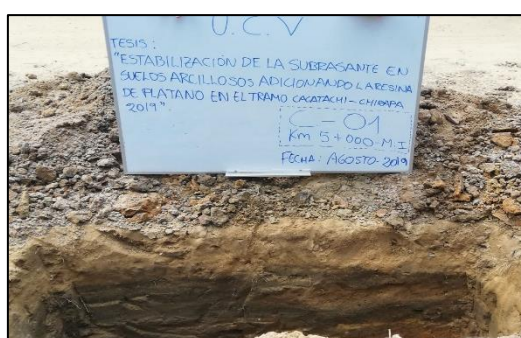 U.C.V
TESIS:
"ESTABILIZACIÓN DE LA SUBRASANTE EN
SUELOS ARCILLOSOS ADICIONANDO LA RESINA
DE PLATANO EN EL TRAMO CACATACHI - CHIRAPA
2019".
C - 01
Km 5+000-M.I
FECHA: AGOSTO-2019